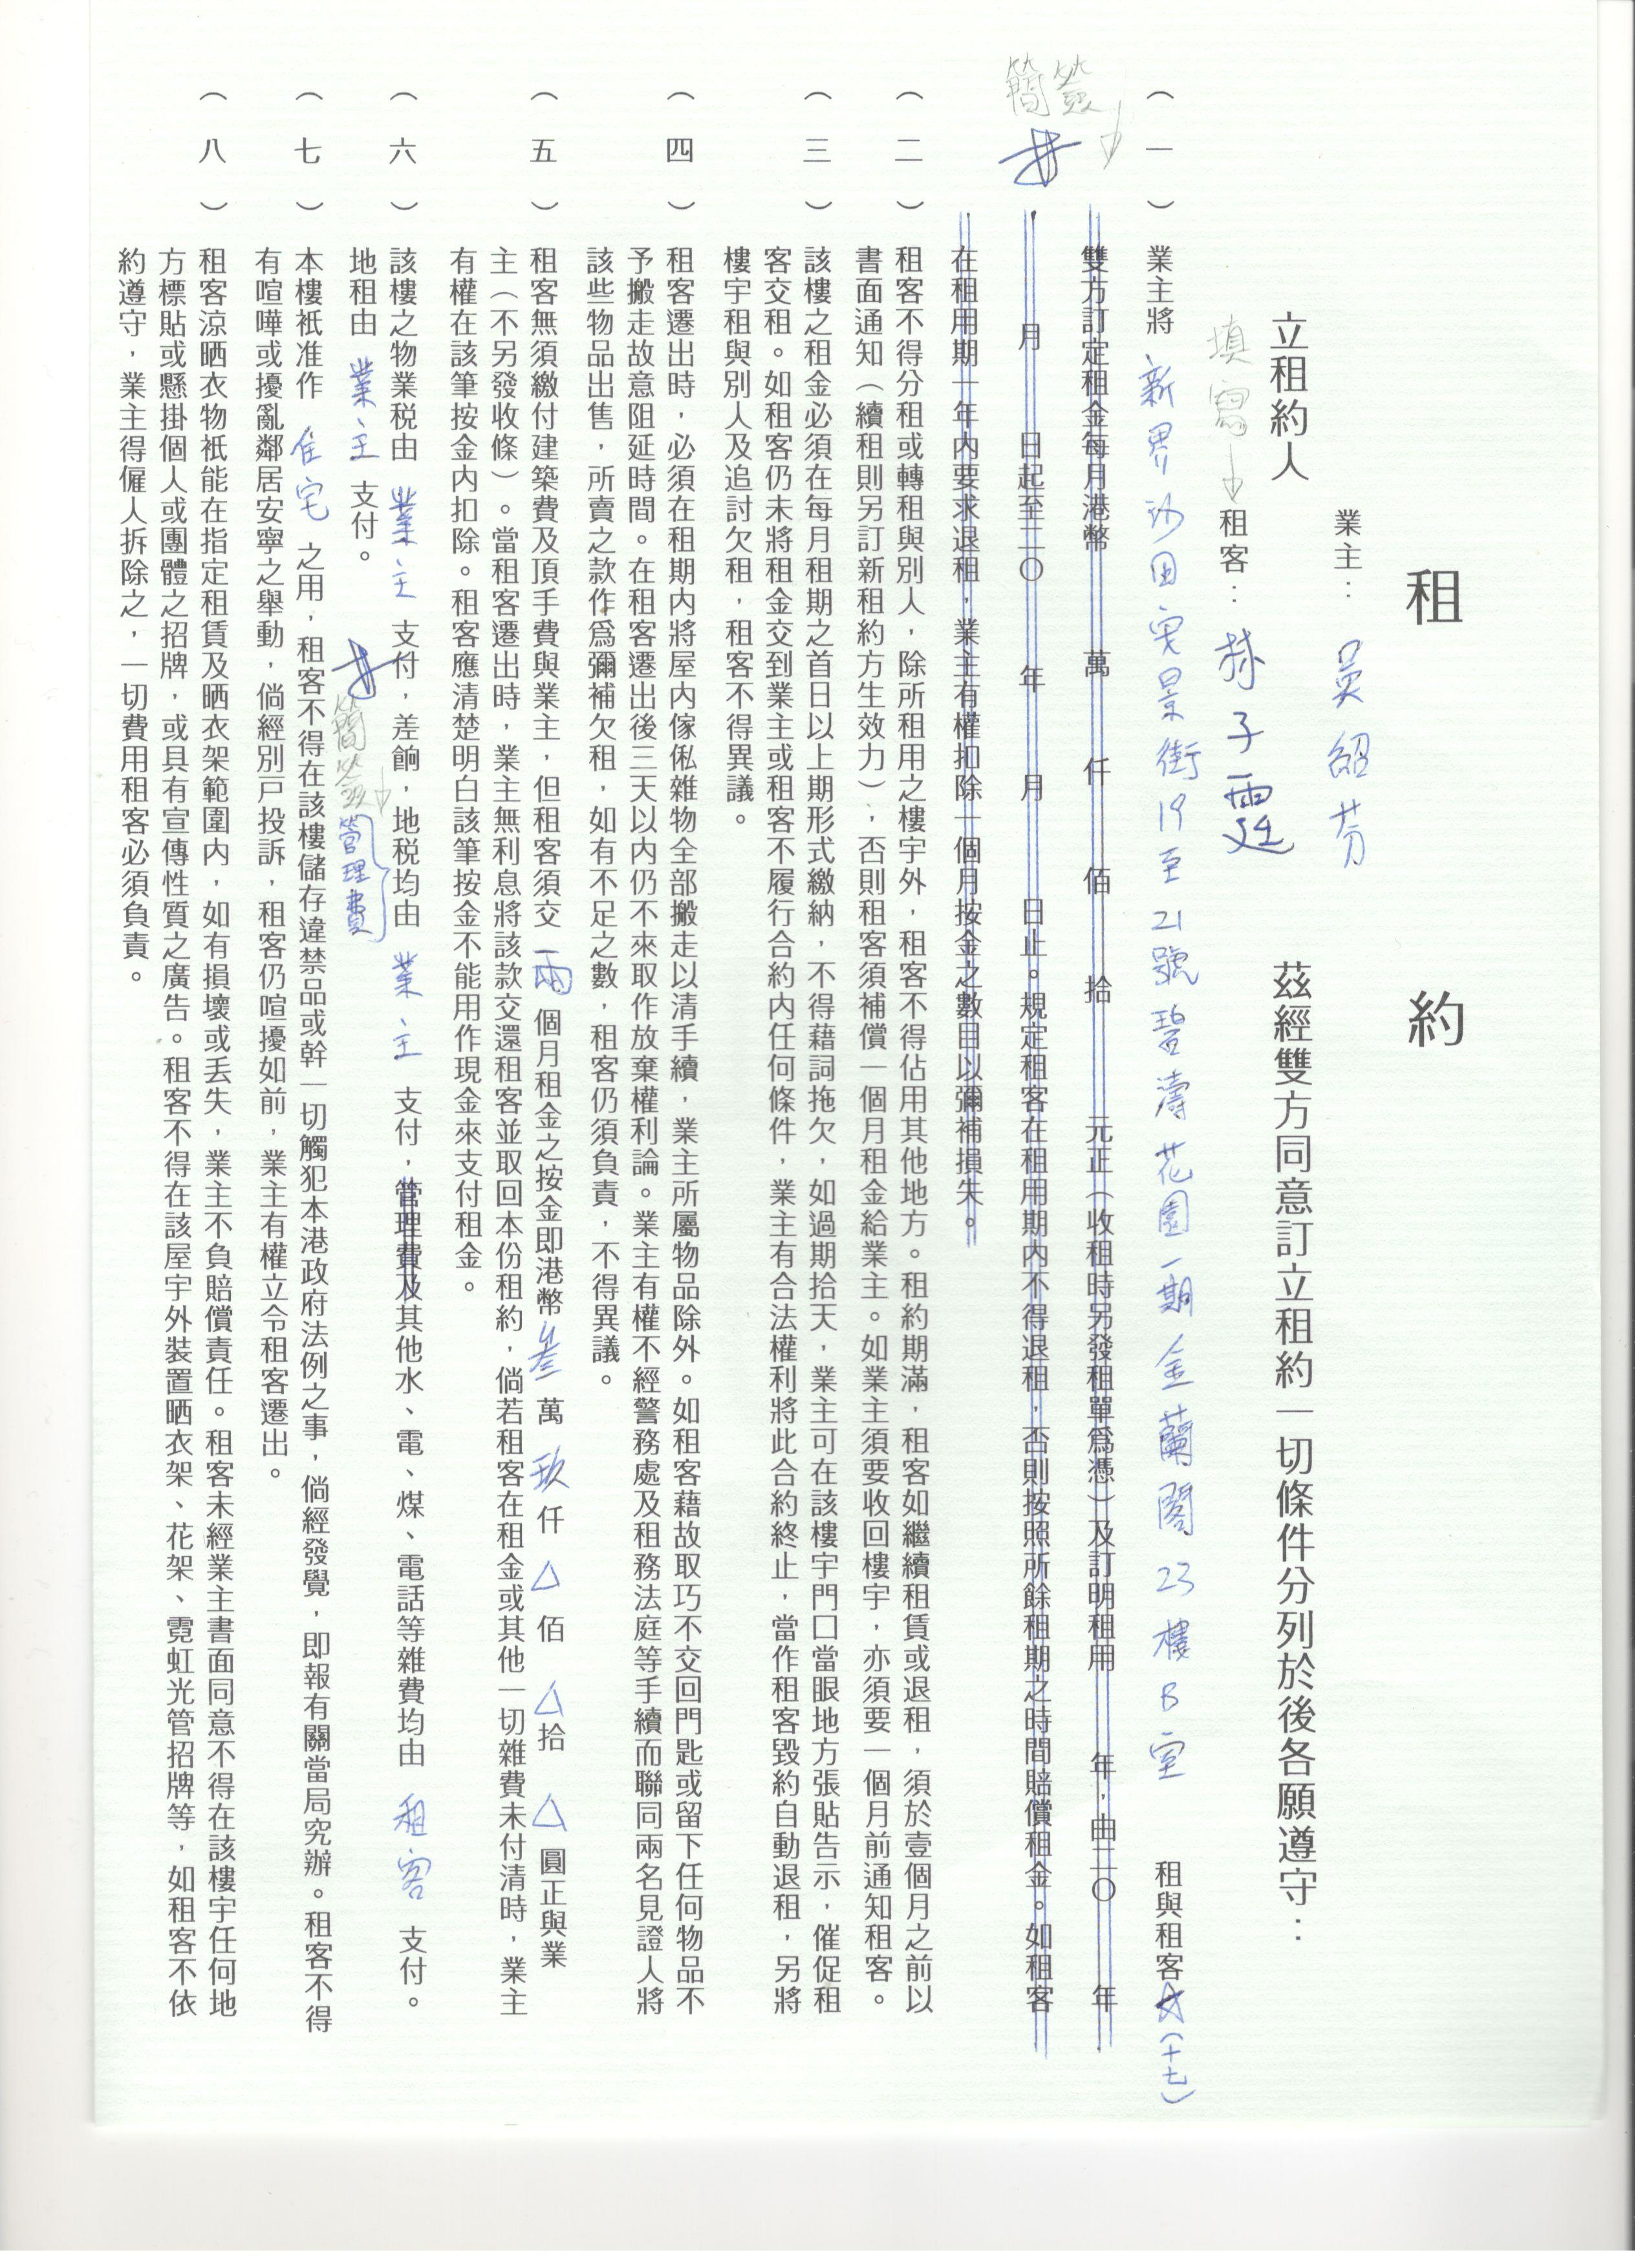 租約
業主：吳紹芬
立租約人 茲經雙方同意訂立租約一切條件分列於後各願遵守：
填寫→租客：林子霆
（一）業主將 新界沙田安景街19至21號碧濤花園一期金蘭閣23樓B室 租與租客☆(十七)
簡簽→
雙方訂定租金每月港幣 萬 仟 佰 拾 元正（收租時另發租單為憑）及訂明租用 年，由二〇 年
月 日起至二〇 年 月 日止。規定租客在租用期內不得退租，否則按照所餘租期之時間賠償租金。如租客
在租用期一年內要求退租，業主有權扣除一個月按金之數目以彌補損失。
（二）租客不得分租或轉租與別人，除所租用之樓宇外，租客不得佔用其他地方。租約期滿，租客如繼續租賃或退租，須於壹個月之前以
書面通知（續租則另訂新租約方生效力），否則租客須補償一個月租金給業主。如業主須要收回樓宇，亦須要一個月前通知租客。
（三）該樓之租金必須在每月租期之首日以上期形式繳納，不得藉詞拖欠，如過期拾天，業主可在該樓宇門口當眼地方張貼告示，催促租
客交租。如租客仍未將租金交到業主或租客不履行合約內任何條件，業主有合法權利將此合約終止，當作租客毀約自動退租，另將
樓宇租與別人及追討欠租，租客不得異議。
（四）租客遷出時，必須在租期內將屋內傢俬雜物全部搬走以清手續，業主所屬物品除外。如租客藉故取巧不交回門匙或留下任何物品不
予搬走故意阻延時間。在租客遷出後三天以內仍不來取作放棄權利論。業主有權不經警務處及租務法庭等手續而聯同兩名見證人將
該些物品出售，所賣之款作為彌補欠租，如有不足之數，租客仍須負責，不得異議。
（五）租客無須繳付建築費及頂手費與業主，但租客須交 兩 個月租金之按金即港幣 叁 萬 玖 仟 △ 佰 △ 拾 △ 圓正與業
主（不另發收條）。當租客遷出時，業主無利息將該款交還租客並取回本份租約，倘若租客在租金或其他一切雜費未付清時，業主
有權在該筆按金內扣除。租客應清楚明白該筆按金不能用作現金來支付租金。
（六）該樓之物業稅由 業主 支付，差餉，地稅均由 業主 支付，管理費及其他水、電、煤、電話等雜費均由 租客 支付。
地租由 業主 支付。 簡簽→ 管理費
（七）本樓祇准作 住宅 之用，租客不得在該樓儲存違禁品或幹一切觸犯本港政府法例之事，倘經發覺，即報有關當局究辦。租客不得
有喧嘩或擾亂鄰居安寧之舉動，倘經別戶投訴，租客仍喧擾如前，業主有權立令租客遷出。
（八）租客涼晒衣物祇能在指定租賃及晒衣架範圍內，如有損壞或丟失，業主不負賠償責任。租客未經業主書面同意不得在該樓宇任何地
方標貼或懸掛個人或團體之招牌，或具有宣傳性質之廣告。租客不得在該屋宇外裝置晒衣架、花架、霓虹光管招牌等，如租客不依
約遵守，業主得僱人拆除之，一切費用租客必須負責。